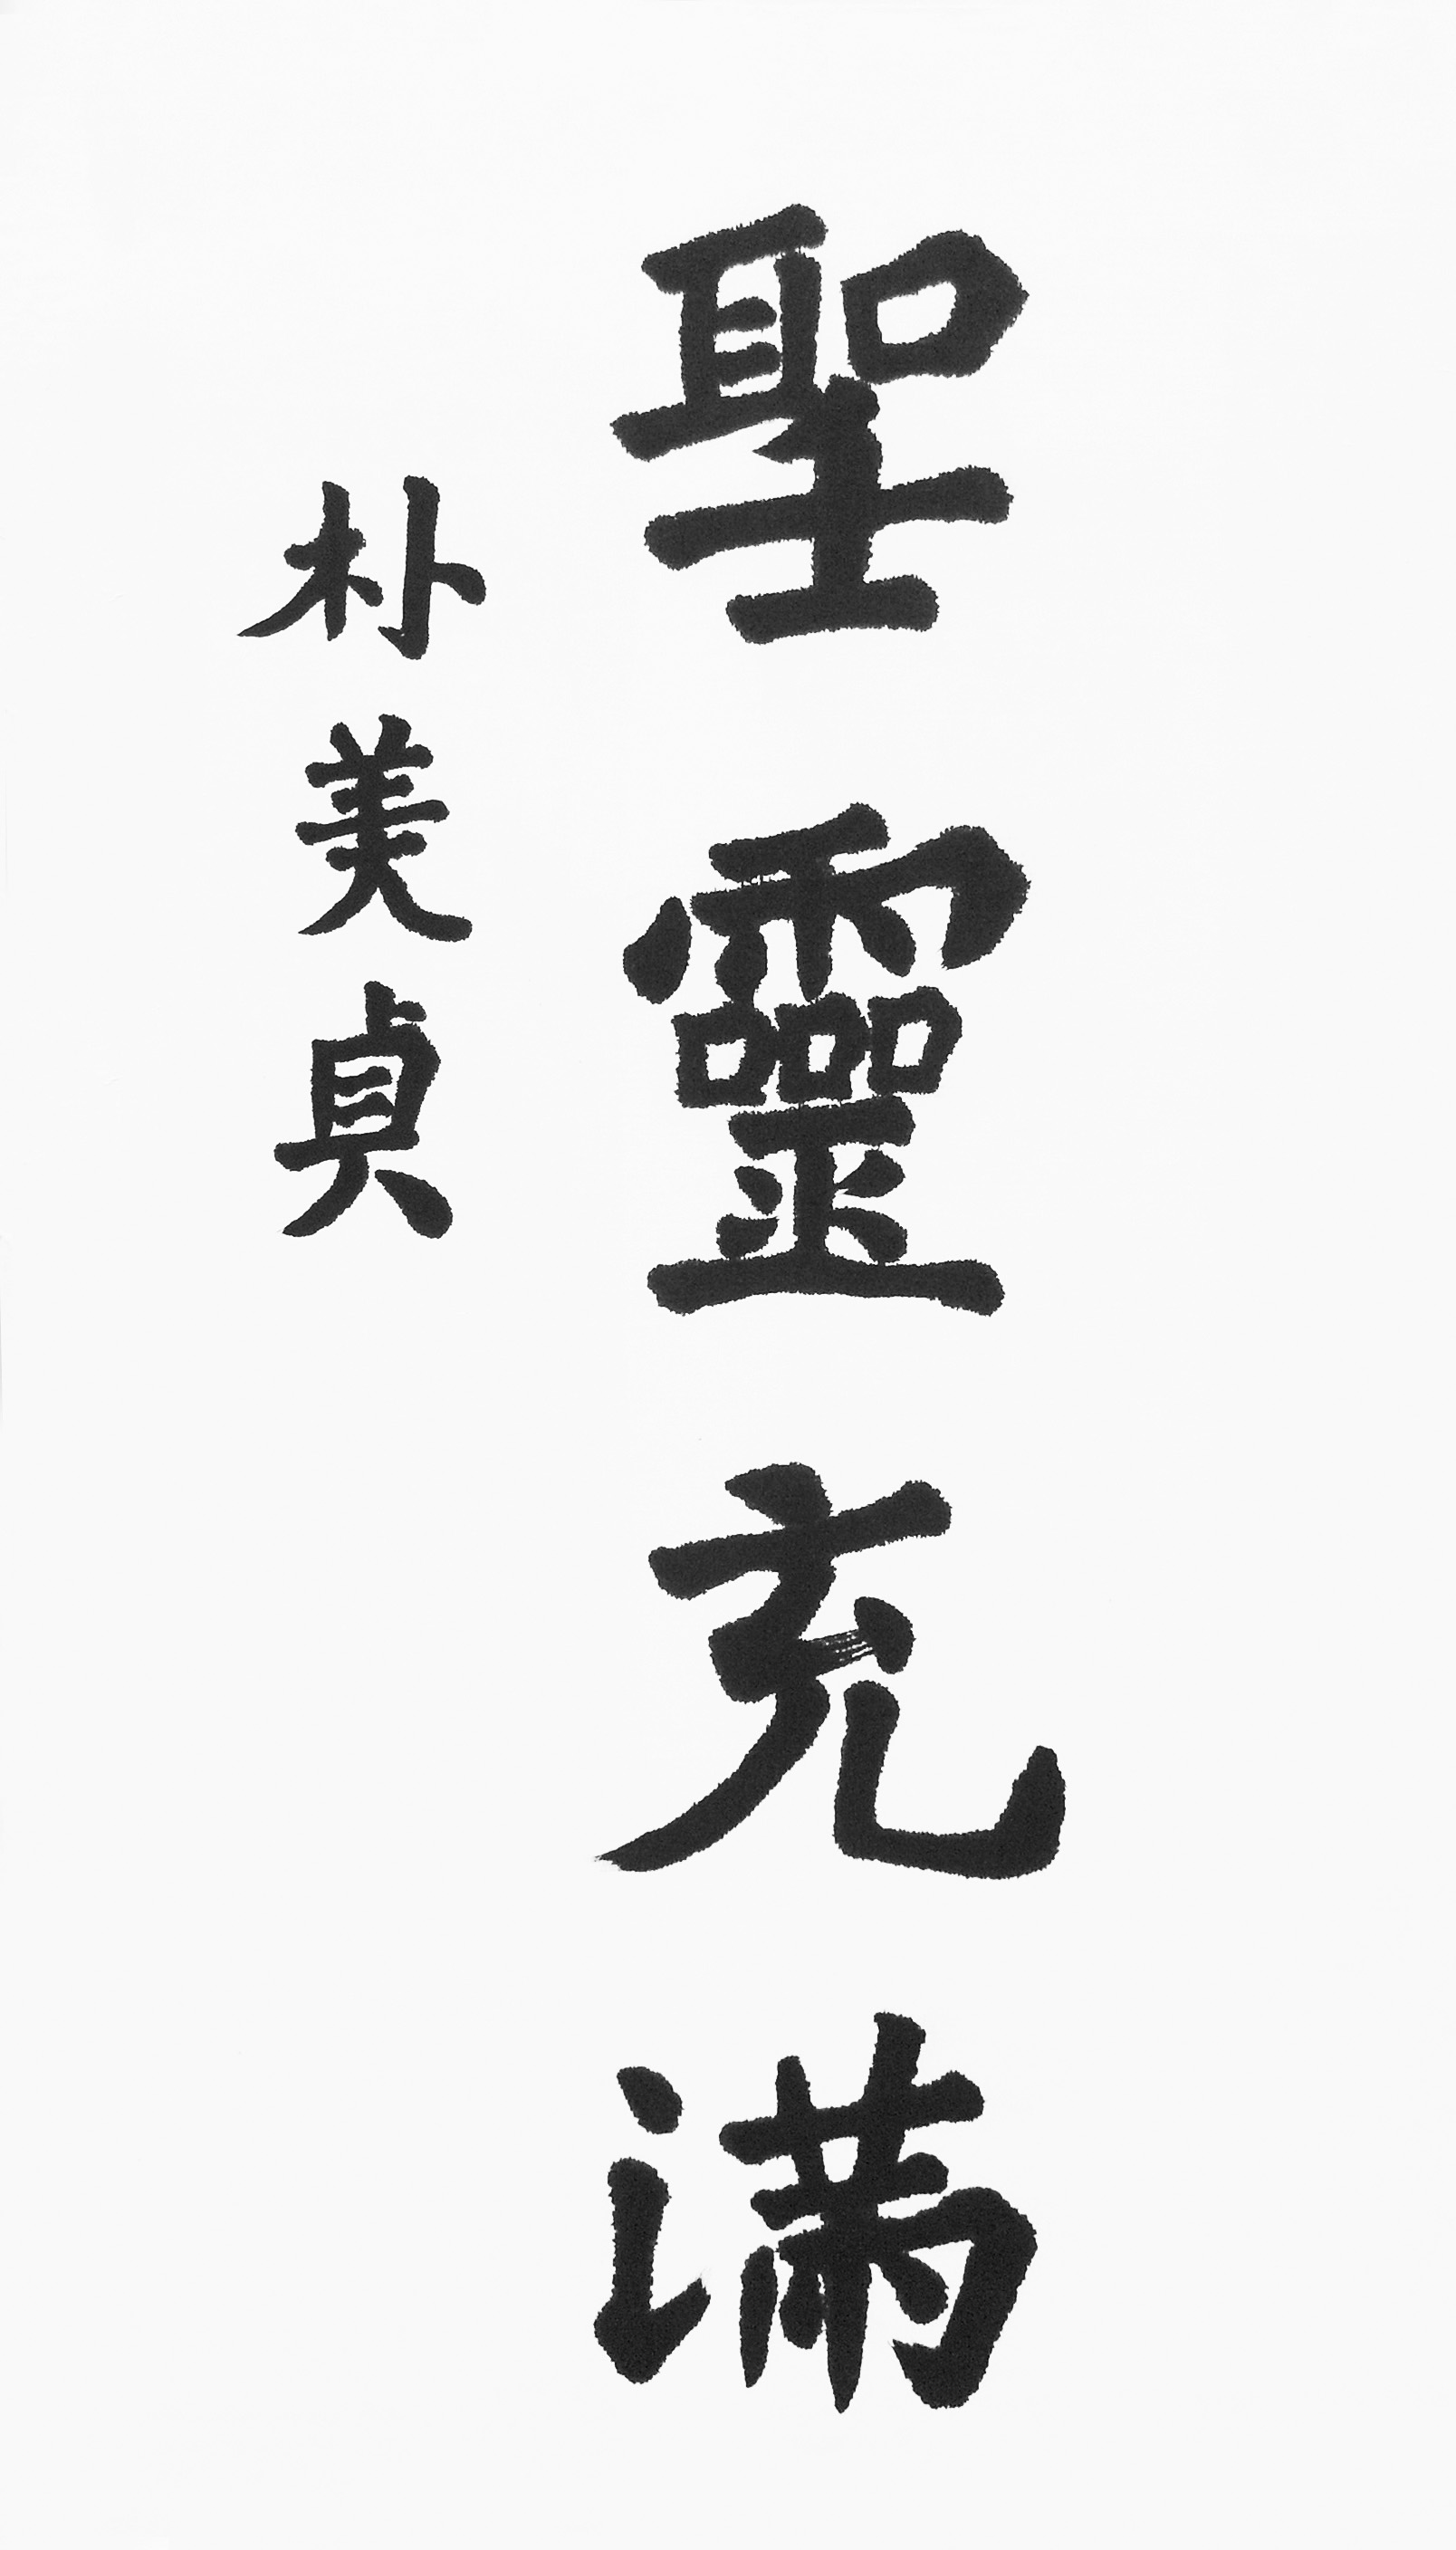 聖靈充滿
朴美貞